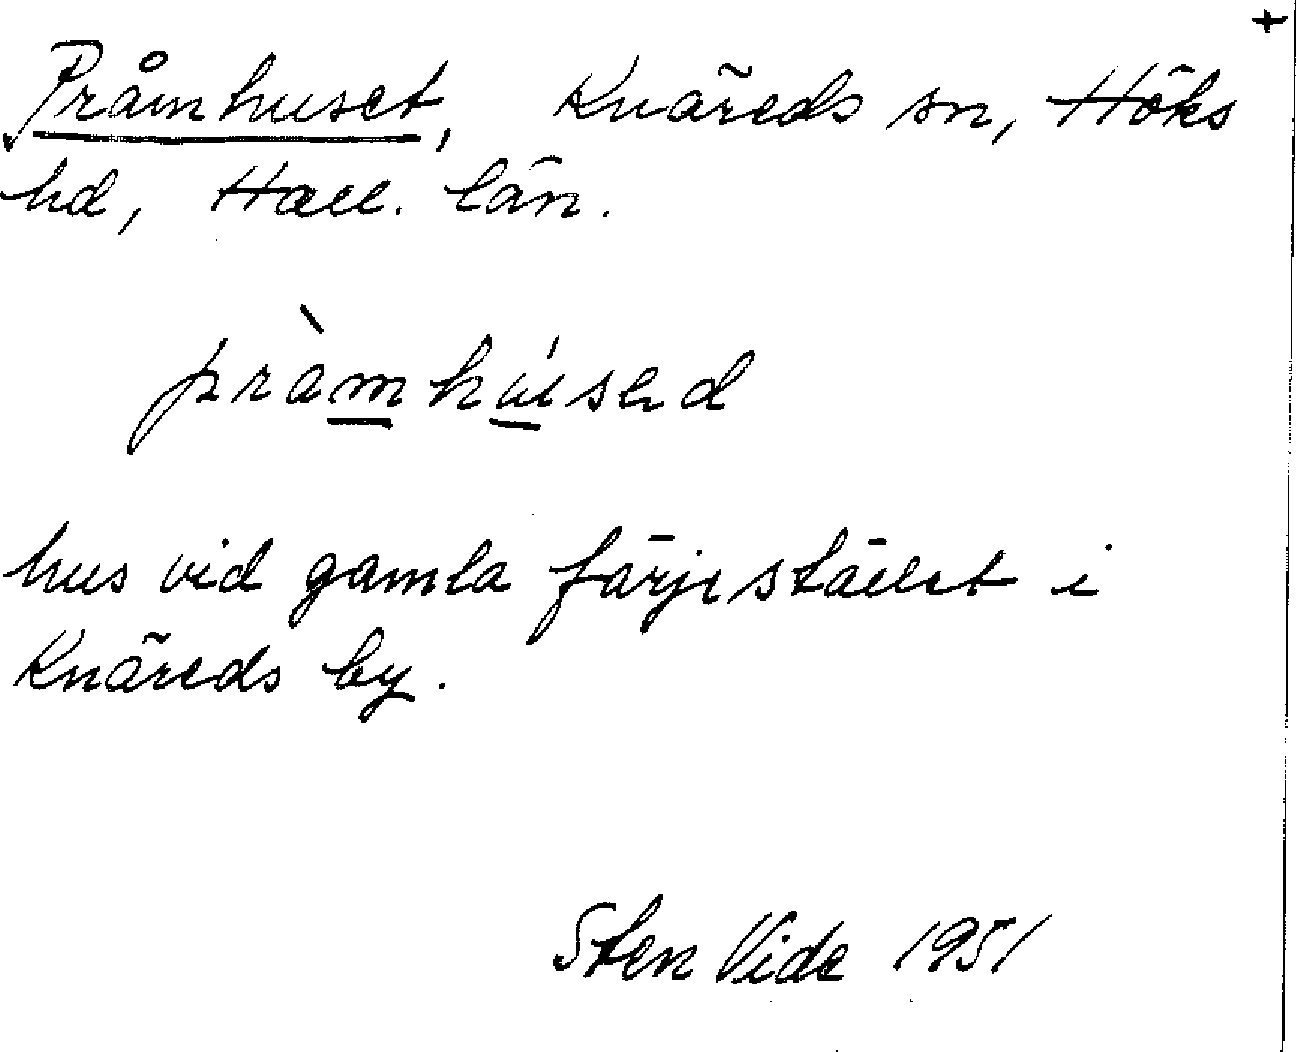 +
Pråmhuset, Knäreds sn, Höks
hd, Hall. län.
pràmhúsed
hus vid gamla färjestället i
Knäreds by.
Sten Vide 1951